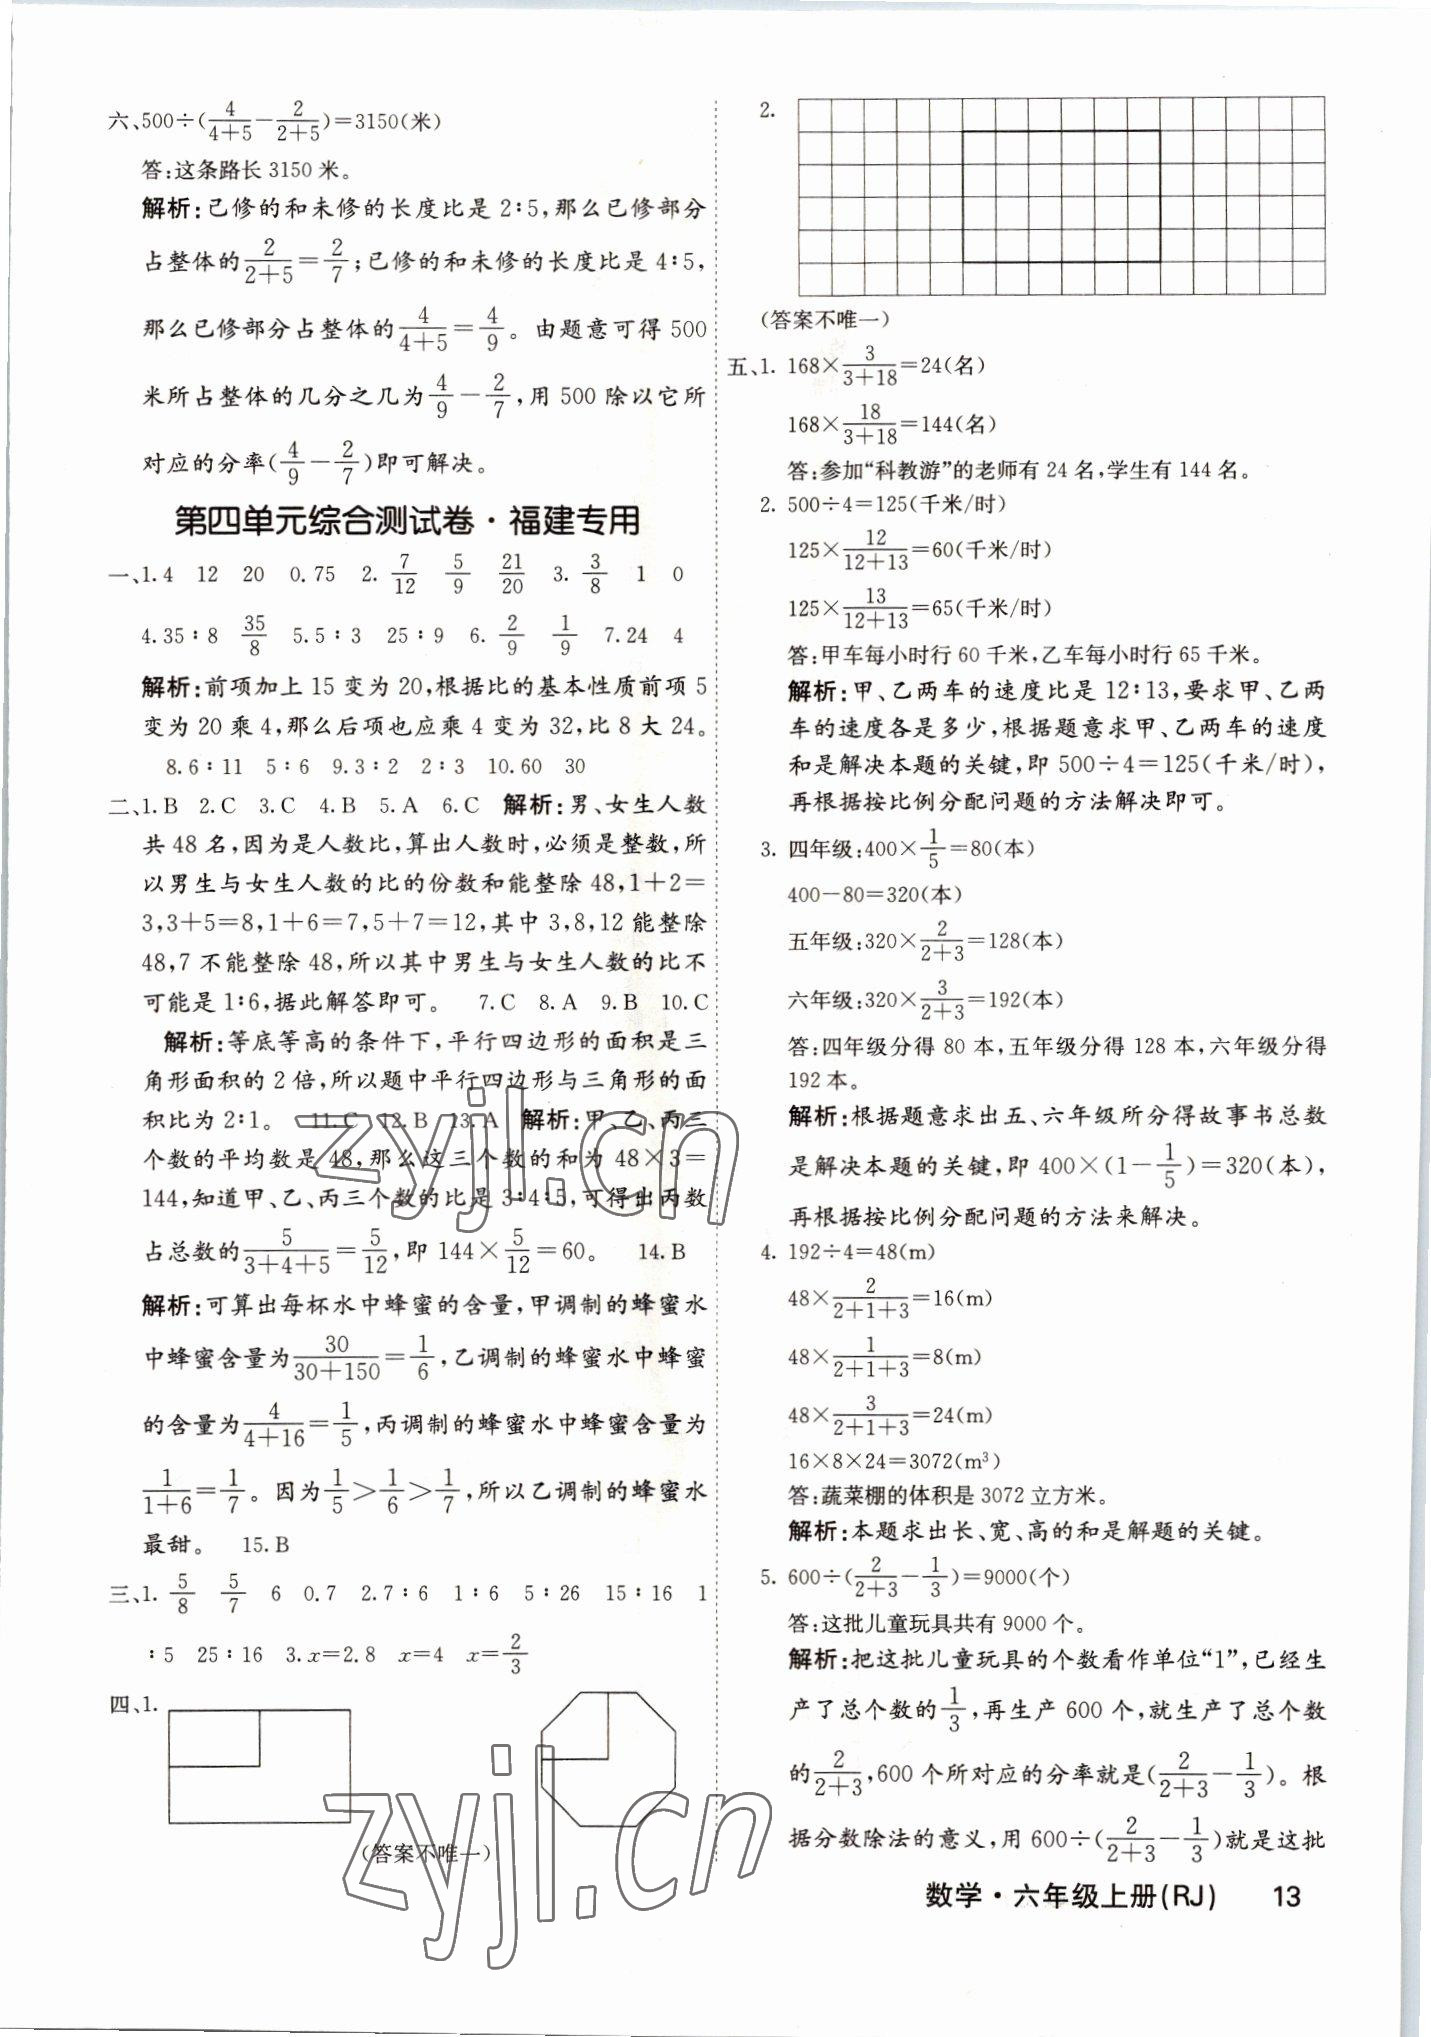 六、500÷(4/(4+5)−2/(2+5))=3150(米)
答:这条路长 3150 米。
解析:已修的和未修的长度比是 2∶5,那么已修部分
占整体的2/(2+5)=2/7;已修的和未修的长度比是 4∶5,
那么已修部分占整体的4/(4+5)=4/9。由题意可得 500
米所占整体的几分之几为4/9−2/7,用 500 除以它所
对应的分率(4/9−2/7)即可解决。
第四单元综合测试卷·福建专用
一、1.4 12 20 0.75 2. 7/12 5/9 21/20 3. 3/8 1 0
4.35∶8 35/8 5.5∶3 25∶9 6. 2/9 1/9 7.24 4
解析:前项加上 15 变为 20,根据比的基本性质前项 5
变为 20 乘 4,那么后项也应乘 4 变为 32,比 8 大 24。
8.6∶11 5∶6 9.3∶2 2∶3 10.60 30
二、1.B 2.C 3.C 4.B 5.A 6.C 解析:男、女生人数
共 48 名,因为是人数比,算出人数时,必须是整数,所
以男生与女生人数的比的份数和能整除 48,1+2=
3,3+5=8,1+6=7,5+7=12,其中 3,8,12 能整除
48,7 不能整除 48,所以其中男生与女生人数的比不
可能是 1∶6,据此解答即可。 7.C 8.A 9.B 10.C
解析:等底等高的条件下,平行四边形的面积是三
角形面积的 2 倍,所以题中平行四边形与三角形的面
积比为 2∶1。 11.C 12.B 13.A 解析:甲、乙、丙三
个数的平均数是 48,那么这三个数的和为 48×3=
144,知道甲、乙、丙三个数的比是 3∶4∶5,可得出丙数
占总数的5/(3+4+5)=5/12,即 144×5/12=60。 14.B
解析:可算出每杯水中蜂蜜的含量,甲调制的蜂蜜水
中蜂蜜含量为30/(30+150)=1/6,乙调制的蜂蜜水中蜂蜜
的含量为4/(4+16)=1/5,丙调制的蜂蜜水中蜂蜜含量为
1/(1+6)=1/7。因为1/5>1/6>1/7,所以乙调制的蜂蜜水
最甜。 15.B
三、1. 5/8 5/7 6 0.7 2.7∶6 1∶6 5∶26 15∶16 1
∶5 25∶16 3.x=2.8 x=4 x=2/3
四、1.
(答案不唯一)
2.
(答案不唯一)
五、1. 168×3/(3+18)=24(名)
168×18/(3+18)=144(名)
答:参加“科教游”的老师有 24 名,学生有 144 名。
2. 500÷4=125(千米/时)
125×12/(12+13)=60(千米/时)
125×13/(12+13)=65(千米/时)
答:甲车每小时行 60 千米,乙车每小时行 65 千米。
解析:甲、乙两车的速度比是 12∶13,要求甲、乙两
车的速度各是多少,根据题意求甲、乙两车的速度
和是解决本题的关键,即 500÷4=125(千米/时),
再根据按比例分配问题的方法解决即可。
3. 四年级:400×1/5=80(本)
400−80=320(本)
五年级:320×2/(2+3)=128(本)
六年级:320×3/(2+3)=192(本)
答:四年级分得 80 本,五年级分得 128 本,六年级分得
192 本。
解析:根据题意求出五、六年级所分得故事书总数
是解决本题的关键,即 400×(1−1/5)=320(本),
再根据按比例分配问题的方法来解决。
4. 192÷4=48(m)
48×2/(2+1+3)=16(m)
48×1/(2+1+3)=8(m)
48×3/(2+1+3)=24(m)
16×8×24=3072(m³)
答:蔬菜棚的体积是 3072 立方米。
解析:本题求出长、宽、高的和是解题的关键。
5. 600÷(2/(2+3)−1/3)=9000(个)
答:这批儿童玩具共有 9000 个。
解析:把这批儿童玩具的个数看作单位“1”,已经生
产了总个数的1/3,再生产 600 个,就生产了总个数
的2/(2+3),600 个所对应的分率就是(2/(2+3)−1/3)。根
据分数除法的意义,用 600÷(2/(2+3)−1/3)就是这批
数学·六年级上册(RJ) 13
zyjl.cn
zyjl.cn